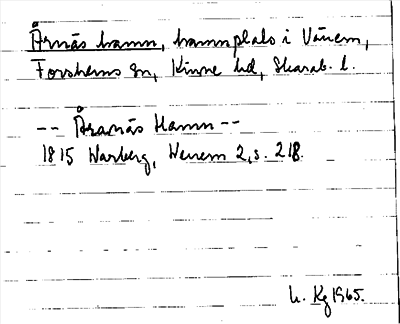 Årnäs hamn, hamnplats i Vänern,
Forshems sn, Kinne hd, Skarab. l.
-- Åranäs Hamn --
1815 Warberg, Wenern 2, s. 218.
L. Kg 1965.